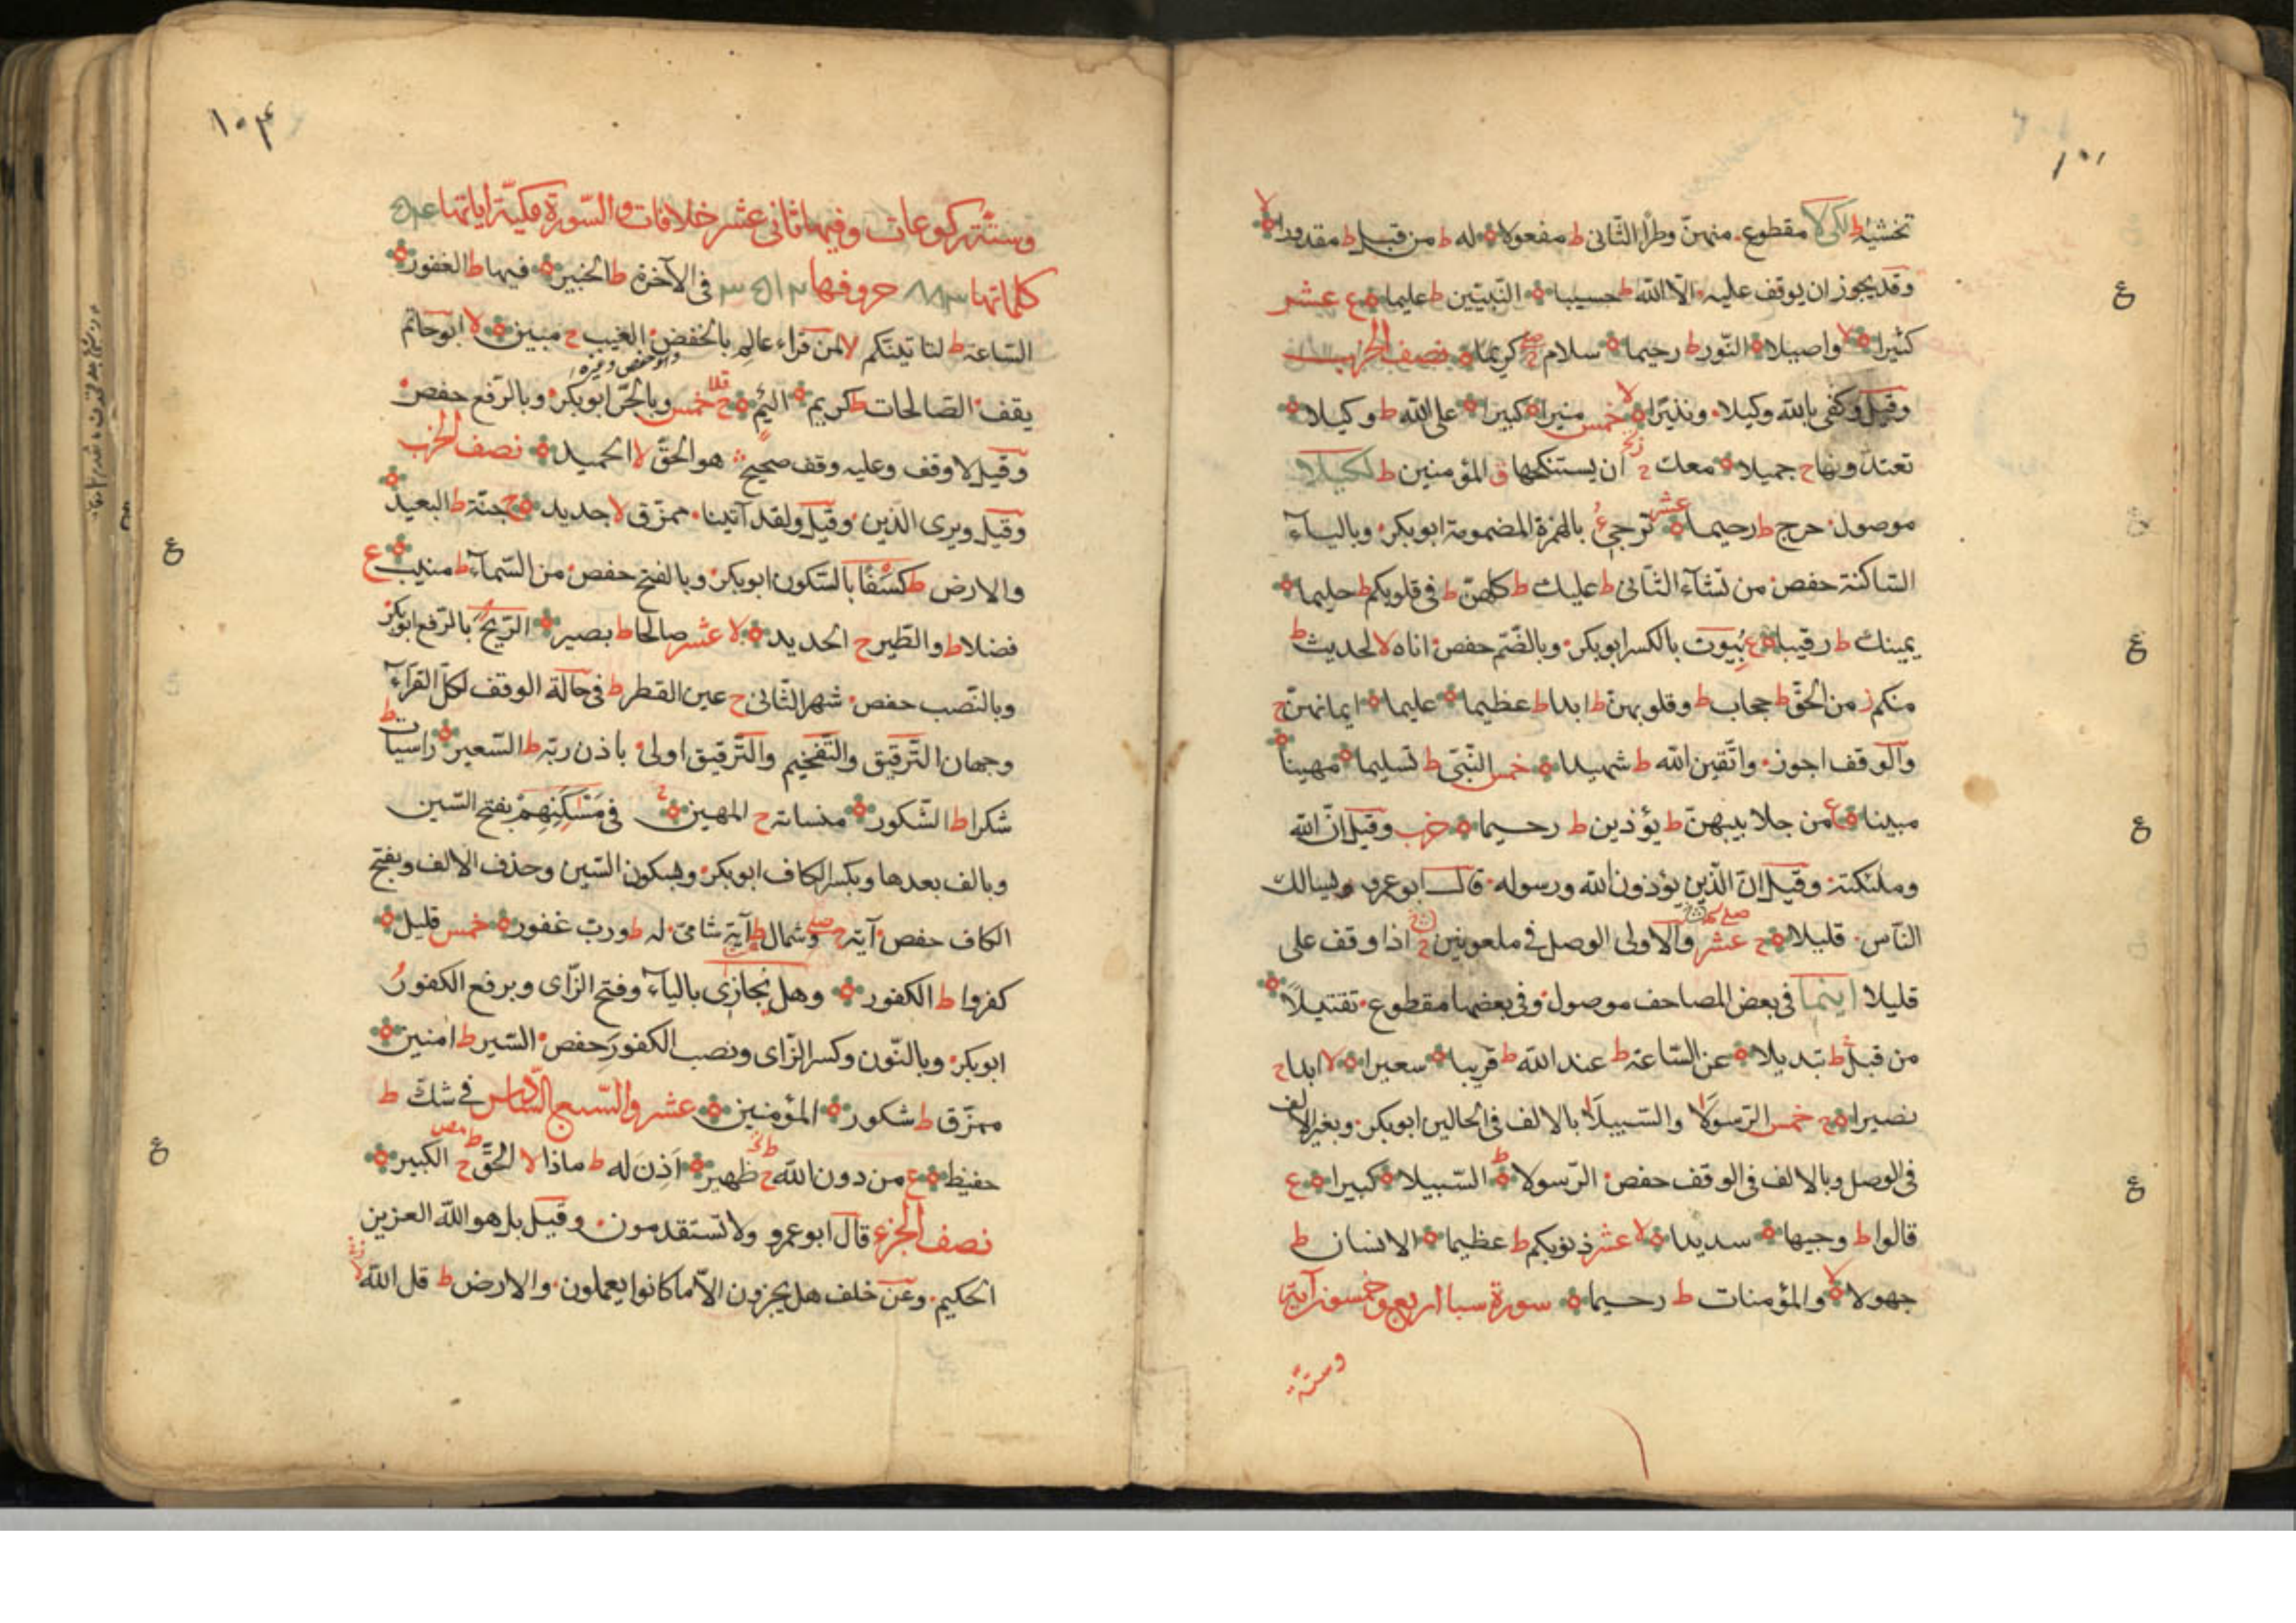 تخشيه ط لكى لا مقطوع منهن وطرا الثانى ط مفعولا له ط من قبل ط مقدورا لا
وقد يجوز ان يوقف عليه الا الله ط حسيبا النبيين ط عليما ع عشر
كثيرا لا واصيلا النور ط رحيما سلام كريما نصف الحزب
وقيل وكفى بالله وكيلا ونذيرا لا خمس منيرا كبيرا على الله ط وكيلا
تعتدونها ح جميلا معك ز ان يستنكحها ق المؤمنين ط لكيلا
موصول حرج ط رحيما عشر ترجئ بالهمزة المضمومة ابوبكر وبالياء
الساكنة حفص من تشاء الثانى ط عليك ط كلهن ط فى قلوبكم ط حليما
يمينك ط رقيبا ع بيوت بالكسر ابوبكر وبالضم حفص اناه لا لحديث ط
منكم ز من الحق ط حجاب ط وقلوبهن ط ابدا ط عظيما عليما ايمانهن ح
والوقف اجوز واتقين الله ط شهيدا خمس النبى ط تسليما مهينا
مبينا ع من جلابيبهن ط يؤذين ط رحيما حزب وقيل ان الله
وملئكته وقيل ان الذين يؤذون الله ورسوله قال ابوعمرو ويسالك
الناس قليلا ح عشر والاولى الوصل فى ملعونين اذا وقف على
قليلا اينما فى بعض المصاحف موصول وفى بعضها مقطوع تقتيلا
من قبل ط تبديلا عن الساعة ط عند الله ط قريبا سعيرا لا ابدا ح
نصيرا ح خمس الرسولا والسبيلا بالالف فى الحالين ابوبكر وبغير الالف
فى الوصل وبالالف فى الوقف حفص الرسولا ط السبيلا كبيرا ع
قالوا ط وجيها سديدا لا عشر ذنوبكم ط عظيما الانسان ط
جهولا لا والمؤمنات ط رحيما سورة سبا اربع وخمسون آية
وستة
١٠٤
وستة ركوعات وفيها ثانى عشر خلافات والسورة مكية اياتها ٥٤
كلماتها ٨٨٣ حروفها فى الآخرة ط الخبير فيها ط الغفور
الساعة ط لتاتينكم لا لمن قراء عالم بالخفض الغيب ح مبين لا ابوحاتم
يقف الصالحات ط كريم اليم خمس وبالجر ابوبكر وبالرفع حفص
وقيل لا وقف وعليه وقف صحيح هو الحق لا الحميد نصف الحزب
وقيل ويرى الذين وقيل ولقد آتينا ممزق لا جديد ح جنة ط البعيد
والارض ط كسفا بالسكون ابوبكر وبالفتح حفص من السماء ط منيب ع
فضلا ط والطير ح الحديد لا عشر صالحا ط بصير الريح بالرفع ابوبكر
وبالنصب حفص شهر الثانى ح عين القطر ط فى حالة الوقف لكل القرآء
وجهان الترقيق والتفخيم والترقيق اولى باذن ربه ط السعير راسيات ط
شكرا ط الشكور منساته ح المهين فى مسكنهم بفتح السين
وبالف بعدها وبكسر الكاف ابوبكر وبسكون السين وحذف الالف وبفتح
الكاف حفص آية ح وشمال ط آية شامى له ط ورب غفور خمس قليل
كفروا ط الكفور وهل نجازى بالياء وفتح الزاى وبرفع الكفور
ابوبكر وبالنون وكسر الزاى ونصب الكفور حفص السير ط امنين
ممزق ط شكور المؤمنين عشر والسبع السادس فى شك ط
حفيظ ع من دون الله ح ظهير اذن له ط ماذا لا الحق ح الكبير
نصف الجزء قال ابوعمرو ولا تستقدمون وقيل بل هو الله العزيز
الحكيم وعن خلف هل يجزون الا ما كانوا يعملون والارض ط قل الله لا